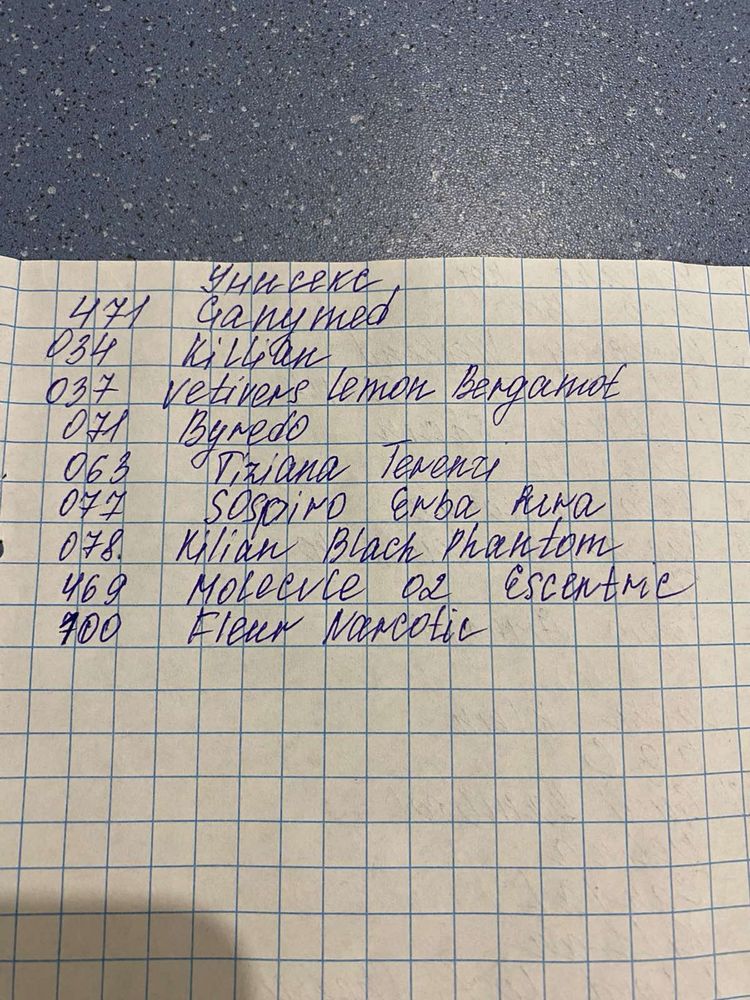 Унисекс
471 Ganymed
034 Killian
037 Vetivers Lemon Bergamot
071 Byredo
063 Tiziana Terenzi
077 Sospiro Erba Pura
078. Kilian Black Phantom
469 Molecule 02 Escentric
700 Fleur Narcotic